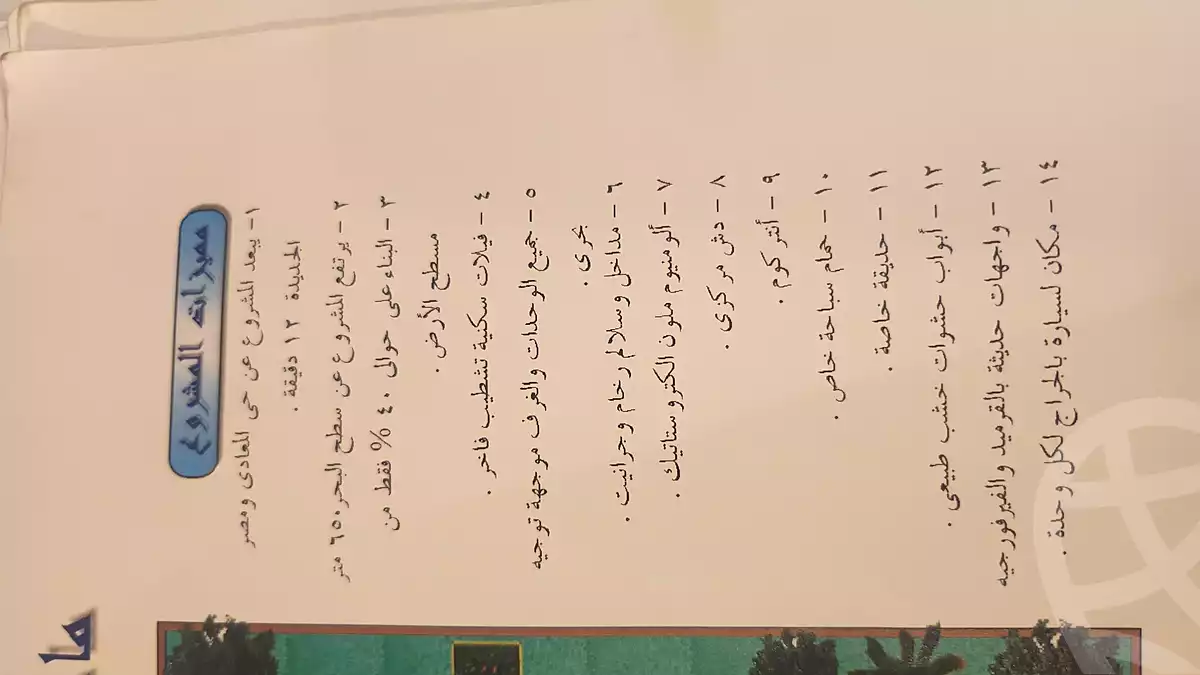 مميزات المشروع
١- يبعد المشروع عن حى المعادى ومصر
الجديدة ١٢ دقيقة .
٢- يرتفع المشروع عن سطح البحر ٦٥٠ متر
٣- البناء على حوالى ٤٠ % فقط من
مسطح الأرض .
٤- فيلات سكنية تشطيب فاخر .
٥- جميع الوحدات والغرف موجهة توجيه
بحرى .
٦- مداخل وسلالم رخام وجرانيت .
٧- ألومنيوم ملون الكتروستاتيك .
٨- دش مركزى .
٩- أنتركوم .
١٠- حمام سباحة خاص .
١١- حديقة خاصة .
١٢- أبواب حشوات خشب طبيعى .
١٣- واجهات حديثة بالقرميد والفيرفورجيه
١٤- مكان لسيارة بالجراج لكل وحدة .